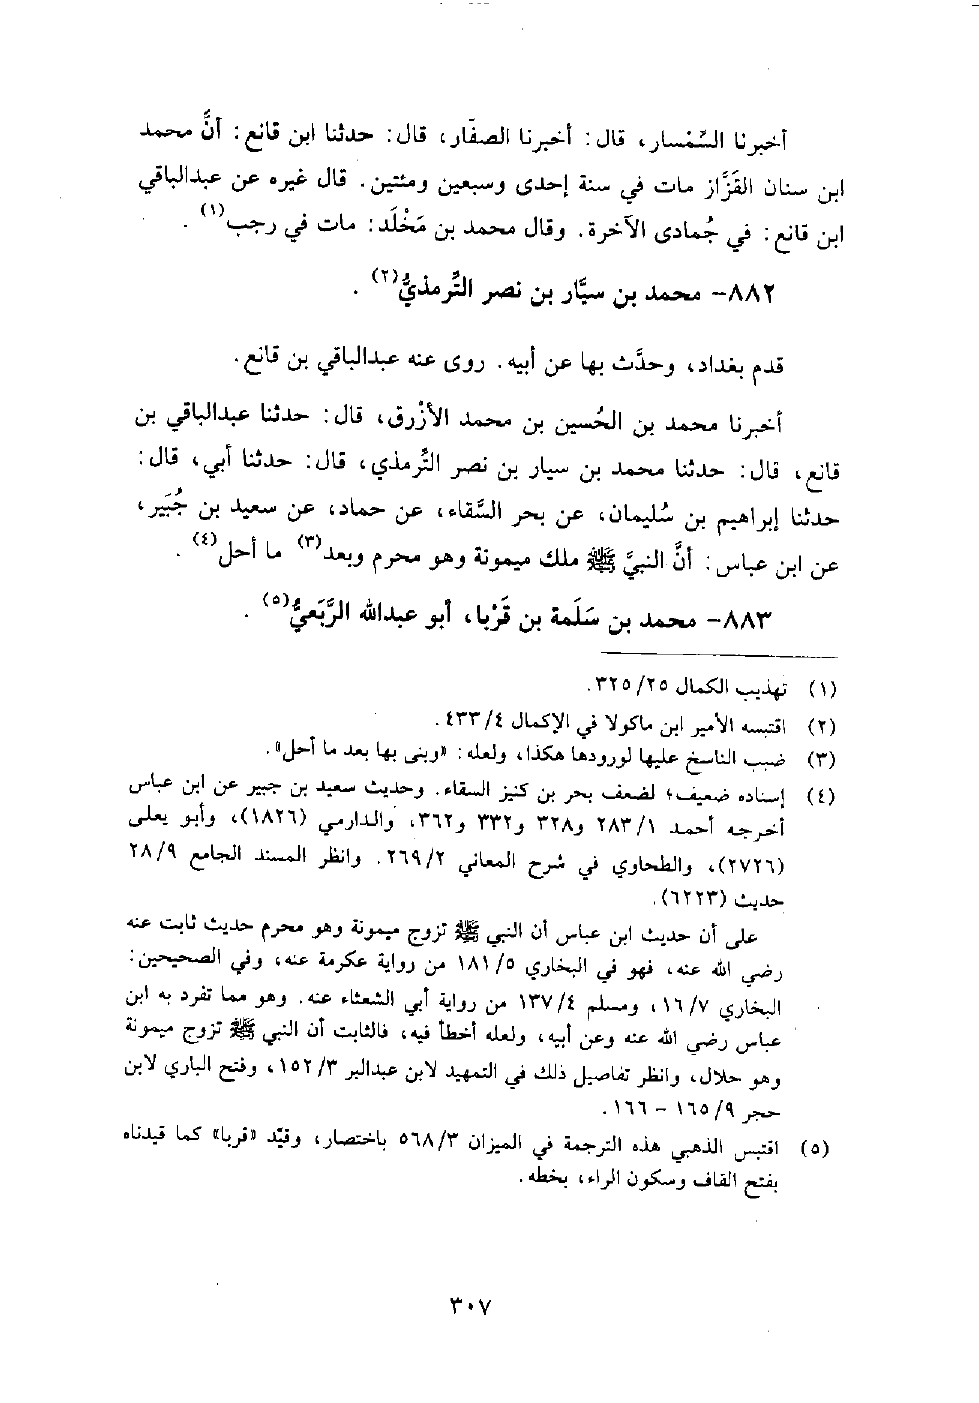 أخبرنا السِّمْسار، قال: أخبرنا الصفَّار، قال: حدثنا ابن قانع: أنَّ محمد
ابن سنان القَزَّاز مات في سنة إحدى وسبعين ومئتين. قال غيره عن عبدالباقي
ابن قانع: في جُمادى الآخرة. وقال محمد بن مَخْلَد: مات في رجب(١).
٨٨٢- محمد بن سيَّار بن نصر التِّرمذيُّ(٢).
قدم بغداد، وحدَّث بها عن أبيه. روى عنه عبدالباقي بن قانع.
أخبرنا محمد بن الحُسين بن محمد الأزْرق، قال: حدثنا عبدالباقي بن
قانع، قال: حدثنا محمد بن سيار بن نصر التِّرمذي، قال: حدثنا أبي، قال:
حدثنا إبراهيم بن سُليمان، عن بحر السَّقاء، عن حماد، عن سعيد بن جُبَير،
عن ابن عباس: أنَّ النبيَّ ﷺ ملك ميمونة وهو محرم وبعد(٣) ما أحل(٤).
٨٨٣- محمد بن سَلَمة بن قَرْبا، أبو عبدالله الرَّبَعيُّ(٥).
(١) تهذيب الكمال ٢٥/ ٣٢٥.
(٢) اقتبسه الأمير ابن ماكولا في الإكمال ٤/ ٤٣٣.
(٣) ضبب الناسخ عليها لورودها هكذا، ولعله: «وبنى بها بعد ما أحل».
(٤) إسناده ضعيف؛ لضعف بحر بن كنيز السقاء. وحديث سعيد بن جبير عن ابن عباس
أخرجه أحمد ١/ ٢٨٣ و٣٢٨ و٣٣٢ و٣٦٢، والدارمي (١٨٢٦)، وأبو يعلى
(٢٧٢٦)، والطحاوي في شرح المعاني ٢/ ٢٦٩. وانظر المسند الجامع ٩/ ٢٨
حديث (٦٢٢٣).
على أن حديث ابن عباس أن النبي ﷺ تزوج ميمونة وهو محرم حديث ثابت عنه
رضي الله عنه، فهو في البخاري ٥/ ١٨١ من رواية عكرمة عنه، وفي الصحيحين:
البخاري ٧/ ١٦، ومسلم ٤/ ١٣٧ من رواية أبي الشعثاء عنه. وهو مما تفرد به ابن
عباس رضي الله عنه وعن أبيه، ولعله أخطأ فيه، فالثابت أن النبي ﷺ تزوج ميمونة
وهو حلال، وانظر تفاصيل ذلك في التمهيد لابن عبدالبر ٣/ ١٥٢، وفتح الباري لابن
حجر ٩/ ١٦٥ - ١٦٦.
(٥) اقتبس الذهبي هذه الترجمة في الميزان ٣/ ٥٦٨ باختصار، وقيّد «قربا» كما قيدناه
بفتح القاف وسكون الراء، بخطه.
٣٠٧